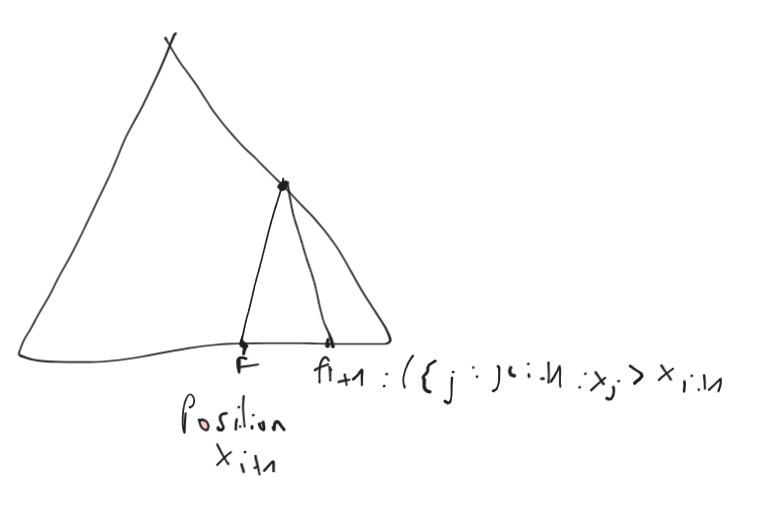 F
f_{i+1} : ({ j : j < i+1 : x_j > x_{i+1}
Position
x_{i+1}